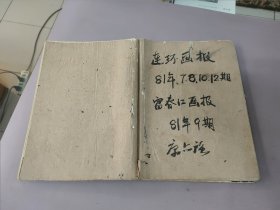 连环画报
81年.7.8.10.12期
富春江画报
81年9期